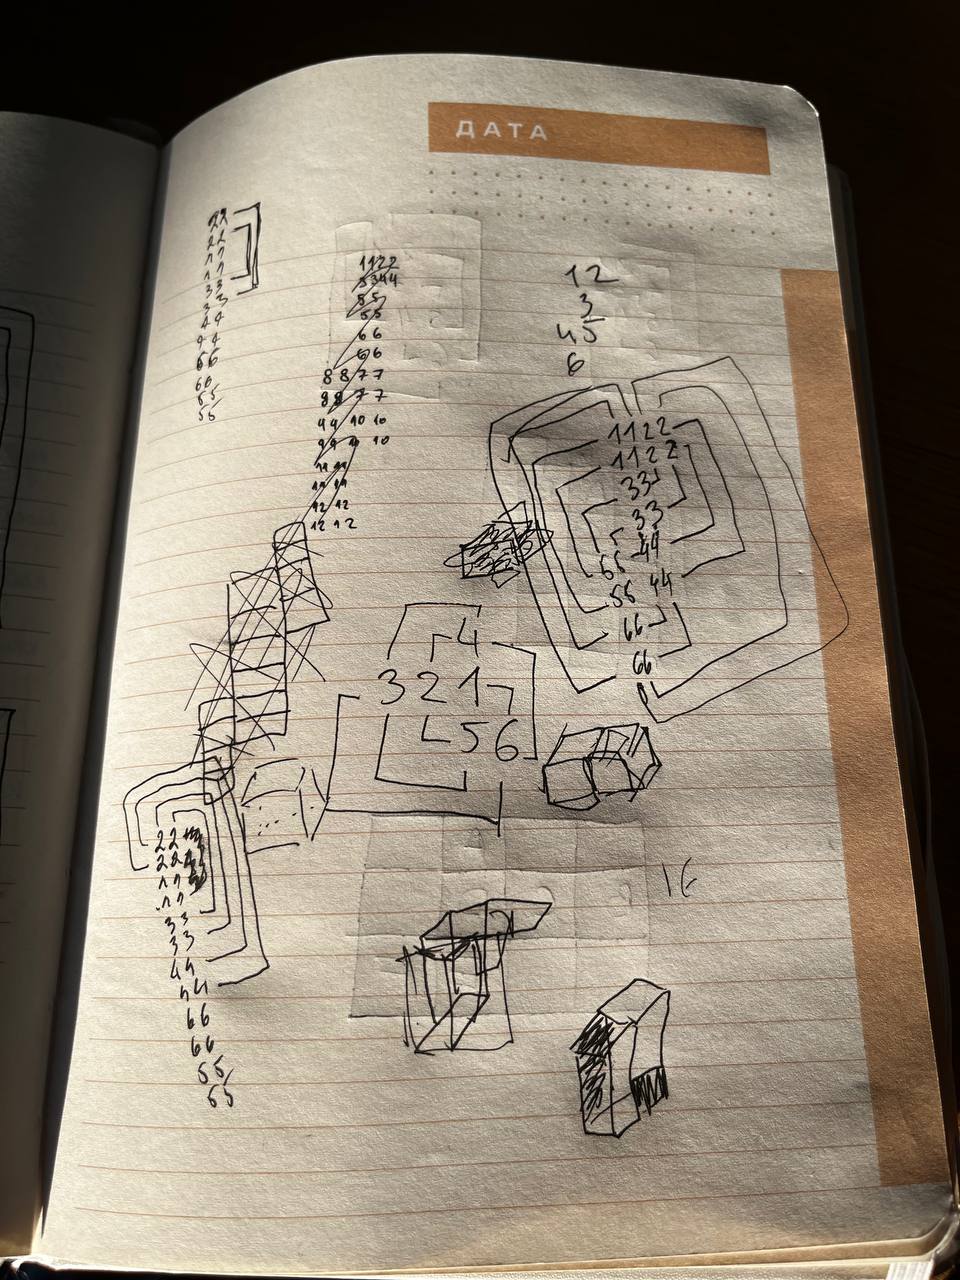 ДАТА
22
22
11
11
33
33
44
44
66
66
55
55
1122
3344
55
55
66
66
8877
8877
44 10 10
10
11 11
11 11
12 12
12 12
12
3
45
6
1122
1122
33
33
44
55
55 44
66
66
4
321
56
22
22
11
11
33
33
44
44
66
66
55
55
16